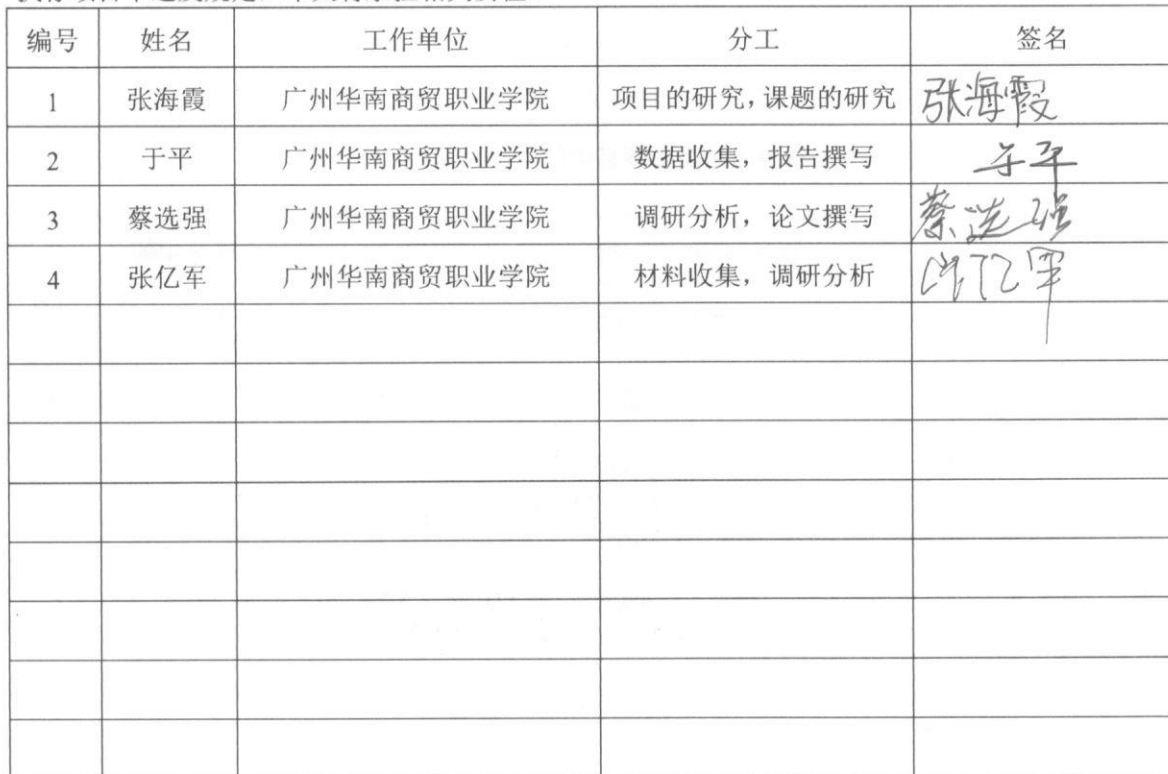 编号 姓名 工作单位 分工 签名
1 张海霞 广州华南商贸职业学院 项目的研究,课题的研究 张海霞
2 于平 广州华南商贸职业学院 数据收集，报告撰写 于平
3 蔡选强 广州华南商贸职业学院 调研分析，论文撰写 蔡选强
4 张亿军 广州华南商贸职业学院 材料收集，调研分析 张亿军